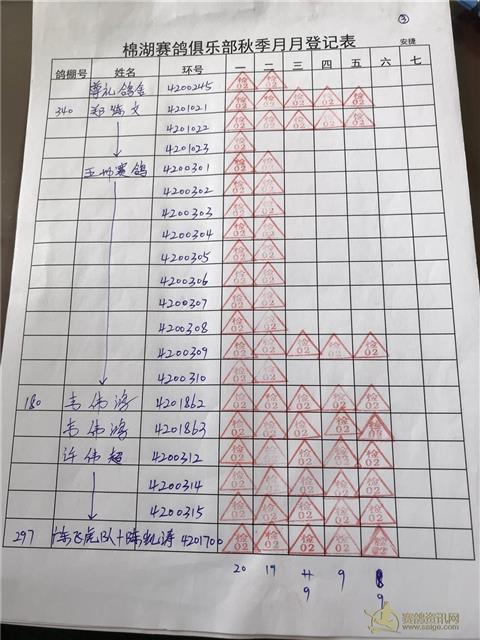 ③
棉湖赛鸽俱乐部秋季月月登记表 安捷
鸽棚号 姓名 环号 一 二 三 四 五 六 七
尊礼鸽舍 4200245 检02 检02
340 郑 文 4201021 检02 检02 检02 检02 检02
4201022 检02 检02 检02 检02 检02
4201023 检02
玉 赛鸽 4200301 检02 检02
4200302 检02 检02
4200303 检02 检02
4200304 检02 检02
4200305 检02 检02
4200306 检02 检02
4200307 检02 检02
4200308 检02 检02
4200309 检02 检02 检02 检02 检02
4200310 检02 检02
180 韦伟鸿 4201862 检02 检02 检02 检02 检02
韦伟鸿 4201863 检02 检02 检02 检02 检02
许伟超 4200312 检02 检02 检02 检02 检02
4200314 检02 检02 检02 检02 检02
4200315 检02 检02 检02 检02 检02
297 陈飞虎队+陈凯涛 4201700 检02 检02 检02 检02 检02
20 19 9 9 9
赛鸽资讯网
www.saige.com